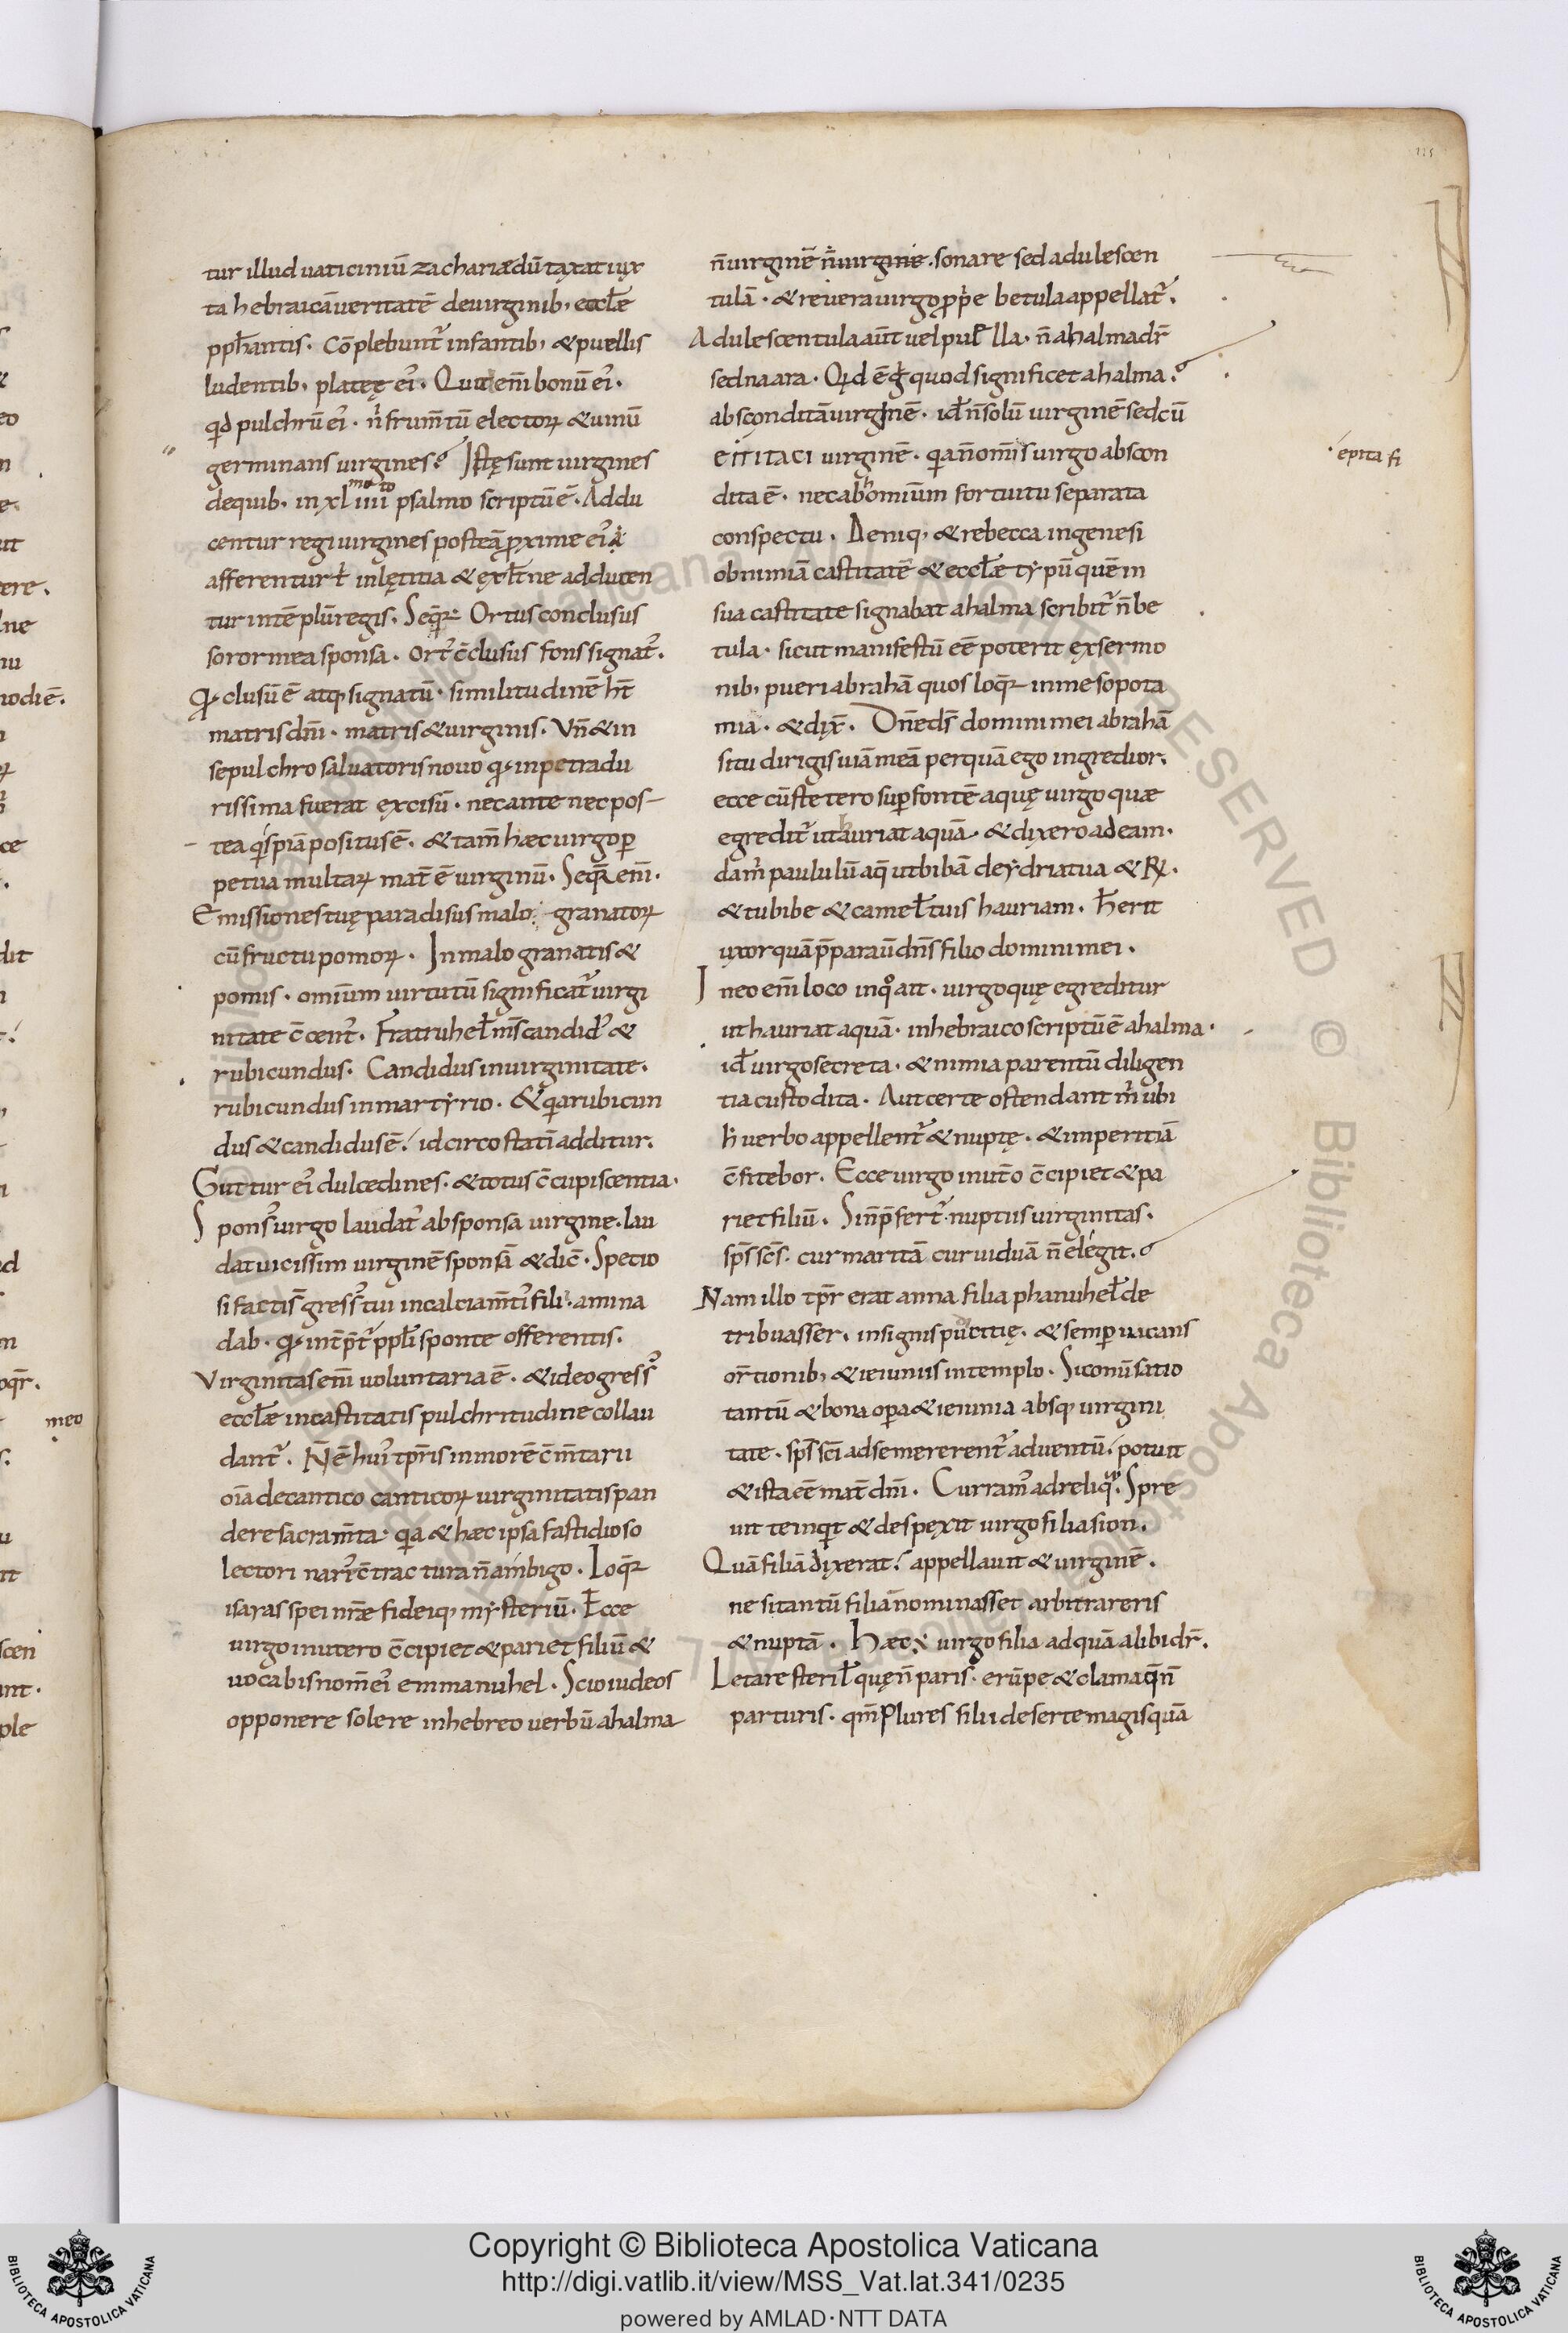 tur illud uaticiniū zachariæ dū taxat iux
ta hebraicā ueritatē de uirginib; eccłe
ppħantis. Cōplebunt᷑ infantib; & puellis
ludentib; plateę ei᾽. Quid eni̅ bonū ei᾽.
qd pulchrū ei᾽. n̓ frum̅tū electoꝝ & uinū
germinans uirgines? Istę sunt uirgines
dequib; in xl iiii mo to psalmo scriptū ē. Addu
centur regi uirgines posteā proxime ei᾽
afferentur t̓ in lętitia & exłt̅ne adducen
tur in tēplū regis. Seqr̅ Ortus conclusus
soror mea sponsa. ort᾽ c̅clusus fons signat᾽.
Qd clusū ē atq; signatū. similitudinē ht̅
matris dn̅i. matris & uirginis. Vn̅ & in
sepulchro saluatoris nouo qd in petra du
rissima fuerat excisū. nec ante nec pos
tea qsp̅ia positus ē. & tam̅ hæc uirgo ꝑ
petua multaꝝ mat̅ ē uirginū. Seqr̅ eni̅.
Emissiones tuę paradisus malo granatoꝝ
cū fructu pomoꝝ. In malo granatis &
pomis. omiūm uirtutū significat᷑ uirgi
nitate c̅cent᾽. Fratruheł m̅s candid᾽ &
rubicundus. Candidus in uirginitate.
rubicundus in martyrio. & qa rubicun
dus & candidus ē. idcirco stati̅ additur.
Guttur ei᾽ dulcedines. & totus c̅cupiscentia.
Spons᾽ uirgo laudat᾽ ab sponsa uirgine. lau
dat uicissim uirginē sponsā & dic̅. Specio
si facti s̅ gress᾽ tui in calciam̅tis filia amina
dab. qd int̅pt̅r ppłi sponte offerentis.
Virginitas eni̅ uoluntaria ē. & ideo gress᾽
eccłæ in castitatis pulchritudine collau
dant᷑. N̅ ē hui᾽ tp̅ris in morē c̅m̅tarii
oi̅a de cantico canticoꝝ uirginitatis pan
dere sacram̅ta. qa & hæc ipsa fastidioso
lectori nari᾽ c̅tractura n̅ ambigo. Loqr̅
isaias spei nr̅æ fideiq; mysteriū. Ecce
uirgo in utero c̅cipiet & pariet filiū &
uocabis nom̅ ei᾽ emmanuhel. Scio iudeos
opponere solere in hebreo uerbū ahalma
n̅ uirginē n̅ uirginē. sonare sed adulescen
tulā. & reuera uirgo proprie betula appellat᷑.
Adulescentula aut̅ uel puella. n̅ ahalma dr̅
sed naara. Qd ē g̊ quod significet ahalma?
absconditā uirginē. id n̅ solū uirginē sed cū
eiitaci uirginē. qa n̅ om̅is uirgo abscon
dita ē. nec ab homiūm fortuitu separata
conspectu. Deniq; & rebecca in genesi
ob nimiā castitatē & eccłæ typū quē in
sua castitate signabat ahalma scribit᷑ n̅ be
tula. sicut manifestū ēē poterit ex sermo
nib; pueri abrahā quos loqr̅ in mesopota
mia. & dix̅. Dn̅e ds̅ domini mei abrahā
si tu dirigis uiā meā per quā ego ingredior.
ecce cū stetero suꝑ fontē aquę uirgo quæ
egredit᷑ ut hauriat aquā. & dixero ad eam.
da m̓ paululū aq̅ ut bibā de ydria tua & R̅.
& tu bibe & cameł tuis hauriam. ħ erit
uxor quā p̅parauit dn̅s filio domini mei.
In eo eni̅ loco in qo ait. uirgo quę egreditur
ut hauriat aquā. in hebraico scriptū ē ahalma.
id uirgo secreta. & nimia parentū diligen
tia custodita. Aut certe ostendant m̓ ubi
h̓ uerbo appellent᷑ & nuptę. & imperitiā
c̅fitebor. Ecce uirgo in ut̅o c̅cipiet & pa
riet filiū. Si n̅ p̅fert᷑ nuptiis uirginitas.
sps̅ scs̅. cur maritā cur uiduā n̅ elegit.
Nam illo tp̅r erat anna filia phanuheł de
tribu asser. insignis pudicitię. & semꝑ uacans
or̅tionib; & ieiuniis in templo. Si conūsatio
tantū & bona oꝑa & ieiunia absq; uirgini
tate. sps̅ sc̅i ad se mererent᷑ aduentū. potuit
& ista ēē mat̅ dn̅i. Curram᾽ ad reliq̅. Spre
uit te inqt & despexit uirgo filia sion.
Quā filiā dixerat. appellauit & uirginē.
ne si tantū filiā nominasset arbitrareris
& nuptā. Hæc ē uirgo filia ad quā alibi dr̅.
Letare sterił quę n̅ paris. erūpe & clama q̅ n̅
parturis. qm̅ plures filii deserte magis quā
épita fi
meo
Copyright © Biblioteca Apostolica Vaticana
http://digi.vatlib.it/view/MSS_Vat.lat.341/0235
powered by AMLAD·NTT DATA